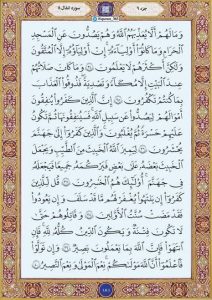 جزء ۹
سوره انفال ۸
وَمَا لَهُمْ أَلَّا يُعَذِّبَهُمُ ٱللَّهُ وَهُمْ يَصُدُّونَ عَنِ ٱلْمَسْجِدِ
ٱلْحَرَامِ وَمَا كَانُوٓا۟ أَوْلِيَآءَهُۥٓ إِنْ أَوْلِيَآؤُهُۥٓ إِلَّا ٱلْمُتَّقُونَ
وَلَٰكِنَّ أَكْثَرَهُمْ لَا يَعْلَمُونَ ۝٣٤ وَمَا كَانَ صَلَاتُهُمْ
عِندَ ٱلْبَيْتِ إِلَّا مُكَآءً وَتَصْدِيَةً فَذُوقُوا۟ ٱلْعَذَابَ
بِمَا كُنتُمْ تَكْفُرُونَ ۝٣٥ إِنَّ ٱلَّذِينَ كَفَرُوا۟ يُنفِقُونَ
أَمْوَٰلَهُمْ لِيَصُدُّوا۟ عَن سَبِيلِ ٱللَّهِ فَسَيُنفِقُونَهَا ثُمَّ تَكُونُ
عَلَيْهِمْ حَسْرَةً ثُمَّ يُغْلَبُونَ وَٱلَّذِينَ كَفَرُوٓا۟ إِلَىٰ جَهَنَّمَ
يُحْشَرُونَ ۝٣٦ لِيَمِيزَ ٱللَّهُ ٱلْخَبِيثَ مِنَ ٱلطَّيِّبِ وَيَجْعَلَ
ٱلْخَبِيثَ بَعْضَهُۥ عَلَىٰ بَعْضٍ فَيَرْكُمَهُۥ جَمِيعًا فَيَجْعَلَهُۥ
فِى جَهَنَّمَ أُو۟لَٰٓئِكَ هُمُ ٱلْخَٰسِرُونَ ۝٣٧ قُل لِّلَّذِينَ
كَفَرُوٓا۟ إِن يَنتَهُوا۟ يُغْفَرْ لَهُم مَّا قَدْ سَلَفَ وَإِن يَعُودُوا۟
فَقَدْ مَضَتْ سُنَّتُ ٱلْأَوَّلِينَ ۝٣٨ وَقَٰتِلُوهُمْ حَتَّىٰ
لَا تَكُونَ فِتْنَةٌ وَيَكُونَ ٱلدِّينُ كُلُّهُۥ لِلَّهِ فَإِنِ
ٱنتَهَوْا۟ فَإِنَّ ٱللَّهَ بِمَا يَعْمَلُونَ بَصِيرٌ ۝٣٩ وَإِن تَوَلَّوْا۟
فَٱعْلَمُوٓا۟ أَنَّ ٱللَّهَ مَوْلَىٰكُمْ نِعْمَ ٱلْمَوْلَىٰ وَنِعْمَ ٱلنَّصِيرُ ۝٤٠
۱۸۱